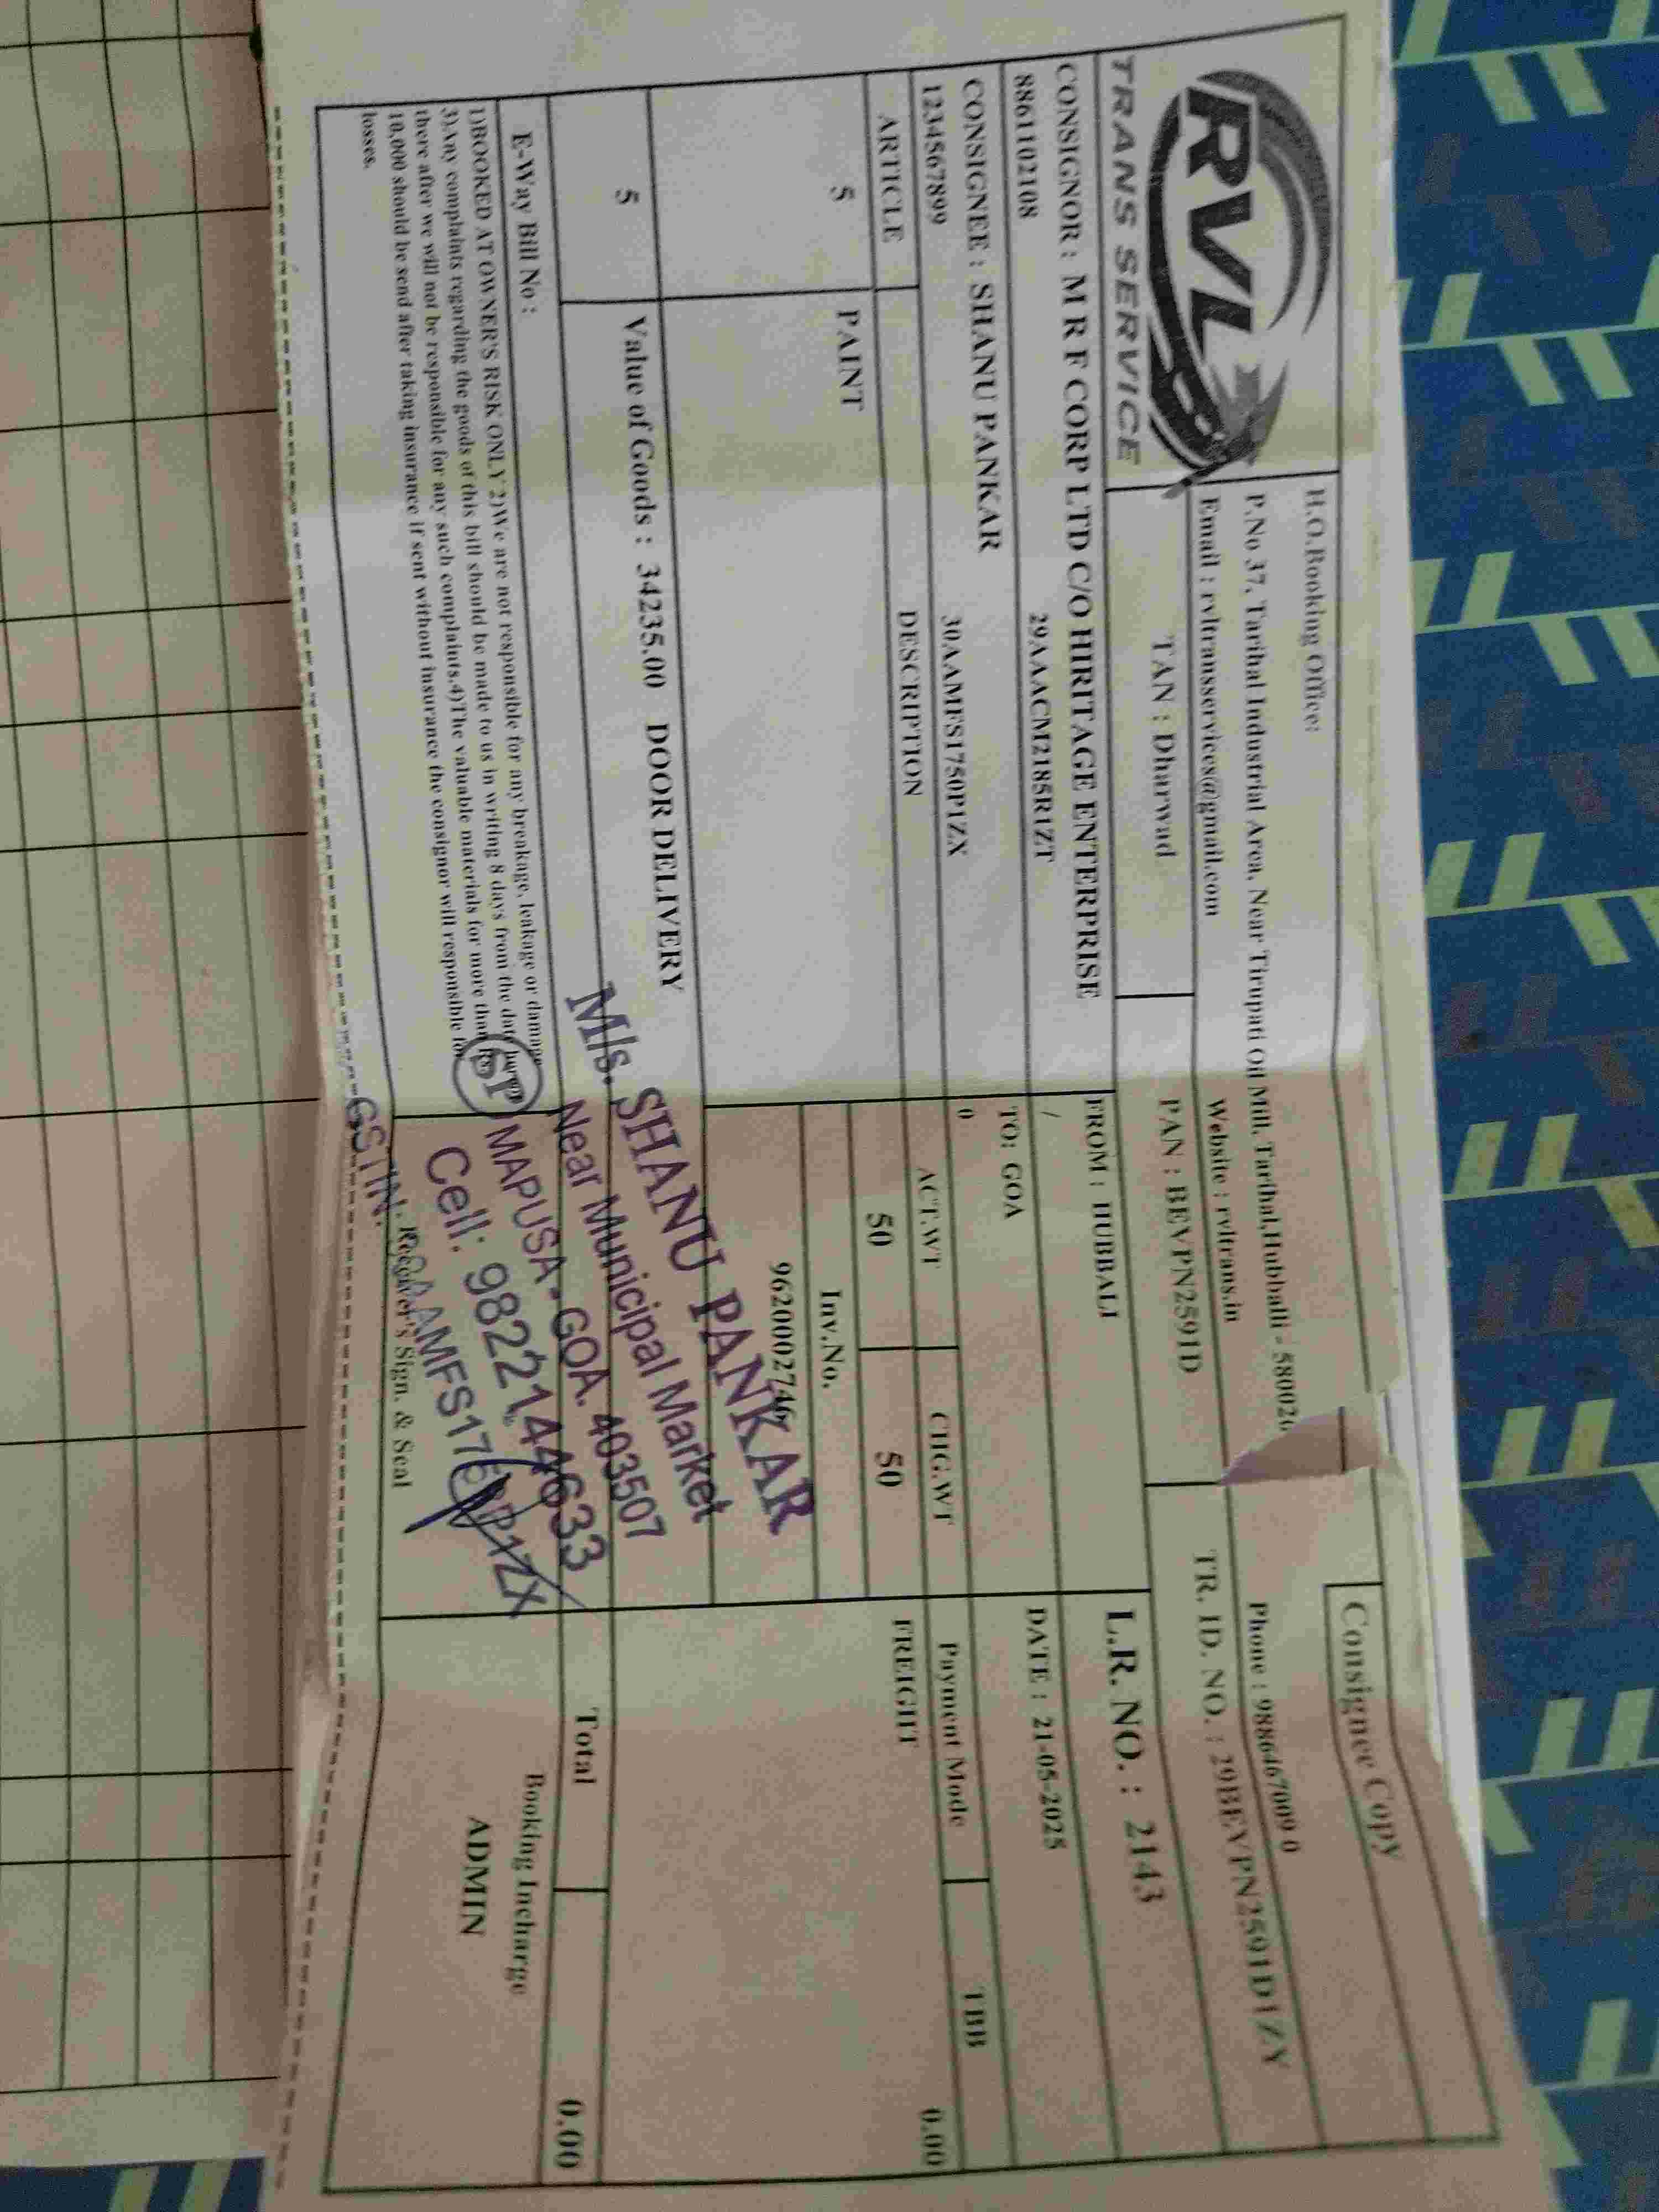 RVL
TRANS SERVICE
Consignee Copy
H.O.Booking Office:
P.No 37, Tarihal Industrial Area, Near Tirupati Oil Mill, Tarihal,Hubballi - 58002
Phone : 9886467009 0
Email : rvltransservices@gmail.com
Website : rvltrans.in
TAN : Dharwad
PAN : BEVPN2591D
TR. ID. NO. : 29BEVPN2591D1ZY
CONSIGNOR : M R F CORP LTD C/O HIRITAGE ENTERPRISE
8861102108
29AAACM2185R1ZT
FROM : HUBBALI
/
L.R. NO. : 2143
CONSIGNEE : SHANU PANKAR
1234567899
30AAMFS1750P1ZX
TO: GOA
0
DATE : 21-05-2025
ARTICLE
DESCRIPTION
ACT.WT
CHG.WT
Payment Mode
TBB
5
PAINT
50
50
FREIGHT
0.00
Inv.No.
9620002746
5
Value of Goods : 34235.00 DOOR DELIVERY
Total
0.00
E-Way Bill No :
1)BOOKED AT OWNER'S RISK ONLY 2)We are not responsible for any breakage, leakage or damage
3)Any complaints regarding the goods of this bill should be made to us in writing 8 days from the date
there after we will not be responsible for any such complaints.4)The valuable materials for more than Rs
10,000 should be send after taking insurance if sent without insurance the consignor will responsible for
losses.
M/s. SHANU PANKAR
Near Municipal Market
SP MAPUSA - GOA. 403507
Cell: 9822144633
GSTIN:
Receiver's Sign. & Seal
Booking Incharge
ADMIN